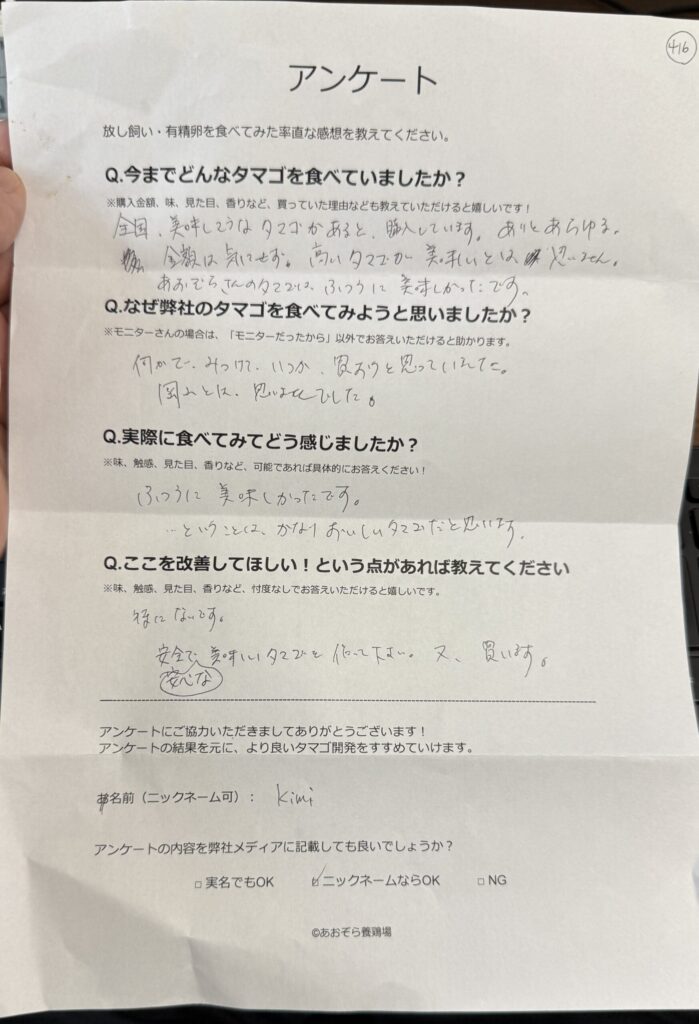 416
アンケート
放し飼い・有精卵を食べてみた率直な感想を教えてください。
Q.今までどんなタマゴを食べていましたか？
※購入金額、味、見た目、香りなど、買っていた理由なども教えていただけると嬉しいです！
全国、美味しそうなタマゴがあると、購入しています。ありとあらゆる。
金額は気にせず。高いタマゴが美味しいとは思いません。
あおぞらさんのタマゴは、ふつうに美味しかったです。
Q.なぜ弊社のタマゴを食べてみようと思いましたか？
※モニターさんの場合は、「モニターだったから」以外でお答えいただけると助かります。
何かで、みつけて、いつか、買おうと思っていました。
岡山とは、思いませんでした。
Q.実際に食べてみてどう感じましたか？
※味、触感、見た目、香りなど、可能であれば具体的にお答えください！
ふつうに美味しかったです。
…ということは、かなりおいしいタマゴだと思います。
Q.ここを改善してほしい！という点があれば教えてください
※味、触感、見た目、香りなど、忖度なしでお答えいただけると嬉しいです。
特にないです。
安全で、美味しいタマゴを作って下さい。又、買います。
安心な
アンケートにご協力いただきましてありがとうございます！
アンケートの結果を元に、より良いタマゴ開発をすすめていけます。
名前（ニックネーム可）： kimi
アンケートの内容を弊社メディアに記載しても良いでしょうか？
□ 実名でもOK ☑ ニックネームならOK □ NG
©あおぞら養鶏場